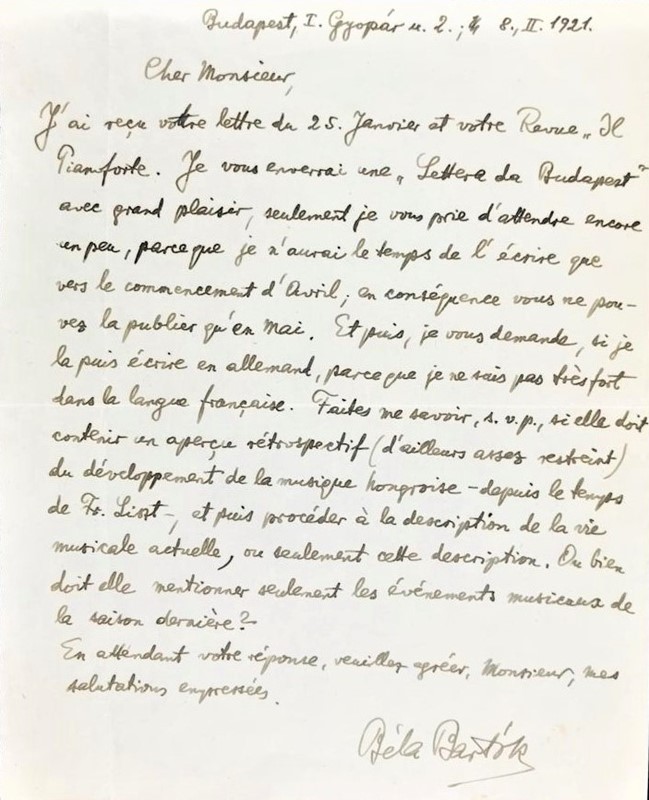 Budapest, I. Gyopár u. 2.; 8., II. 1921.
Cher Monsieur,
J'ai reçu votre lettre du 25. Janvier et votre Revue „Il
Pianoforte. Je vous enverrai une „Lettera da Budapest”
avec grand plaisir, seulement je vous prie d'attendre encore
un peu, parceque je n'aurai le temps de l'écrire que
vers le commencement d'Avril; en conséquence vous ne pou-
vez la publier qu'en Mai. Et puis, je vous demande, si je
la puis écrire en allemand, parceque je ne sais pas très fort
dans la langue française. Faites me savoir, s. v. p., si elle doit
contenir un aperçu rétrospectif (d'ailleurs assez restreint)
du développement de la musique hongroise – depuis le temps
de Fr. Liszt –, et puis procéder à la description de la vie
musicale actuelle, ou seulement cette description. Ou bien
doit elle mentionner seulement les événements musicaux de
la saison dernière?
En attendant votre réponse, veuillez agréer, Monsieur, mes
salutations empressées.
Béla Bartók